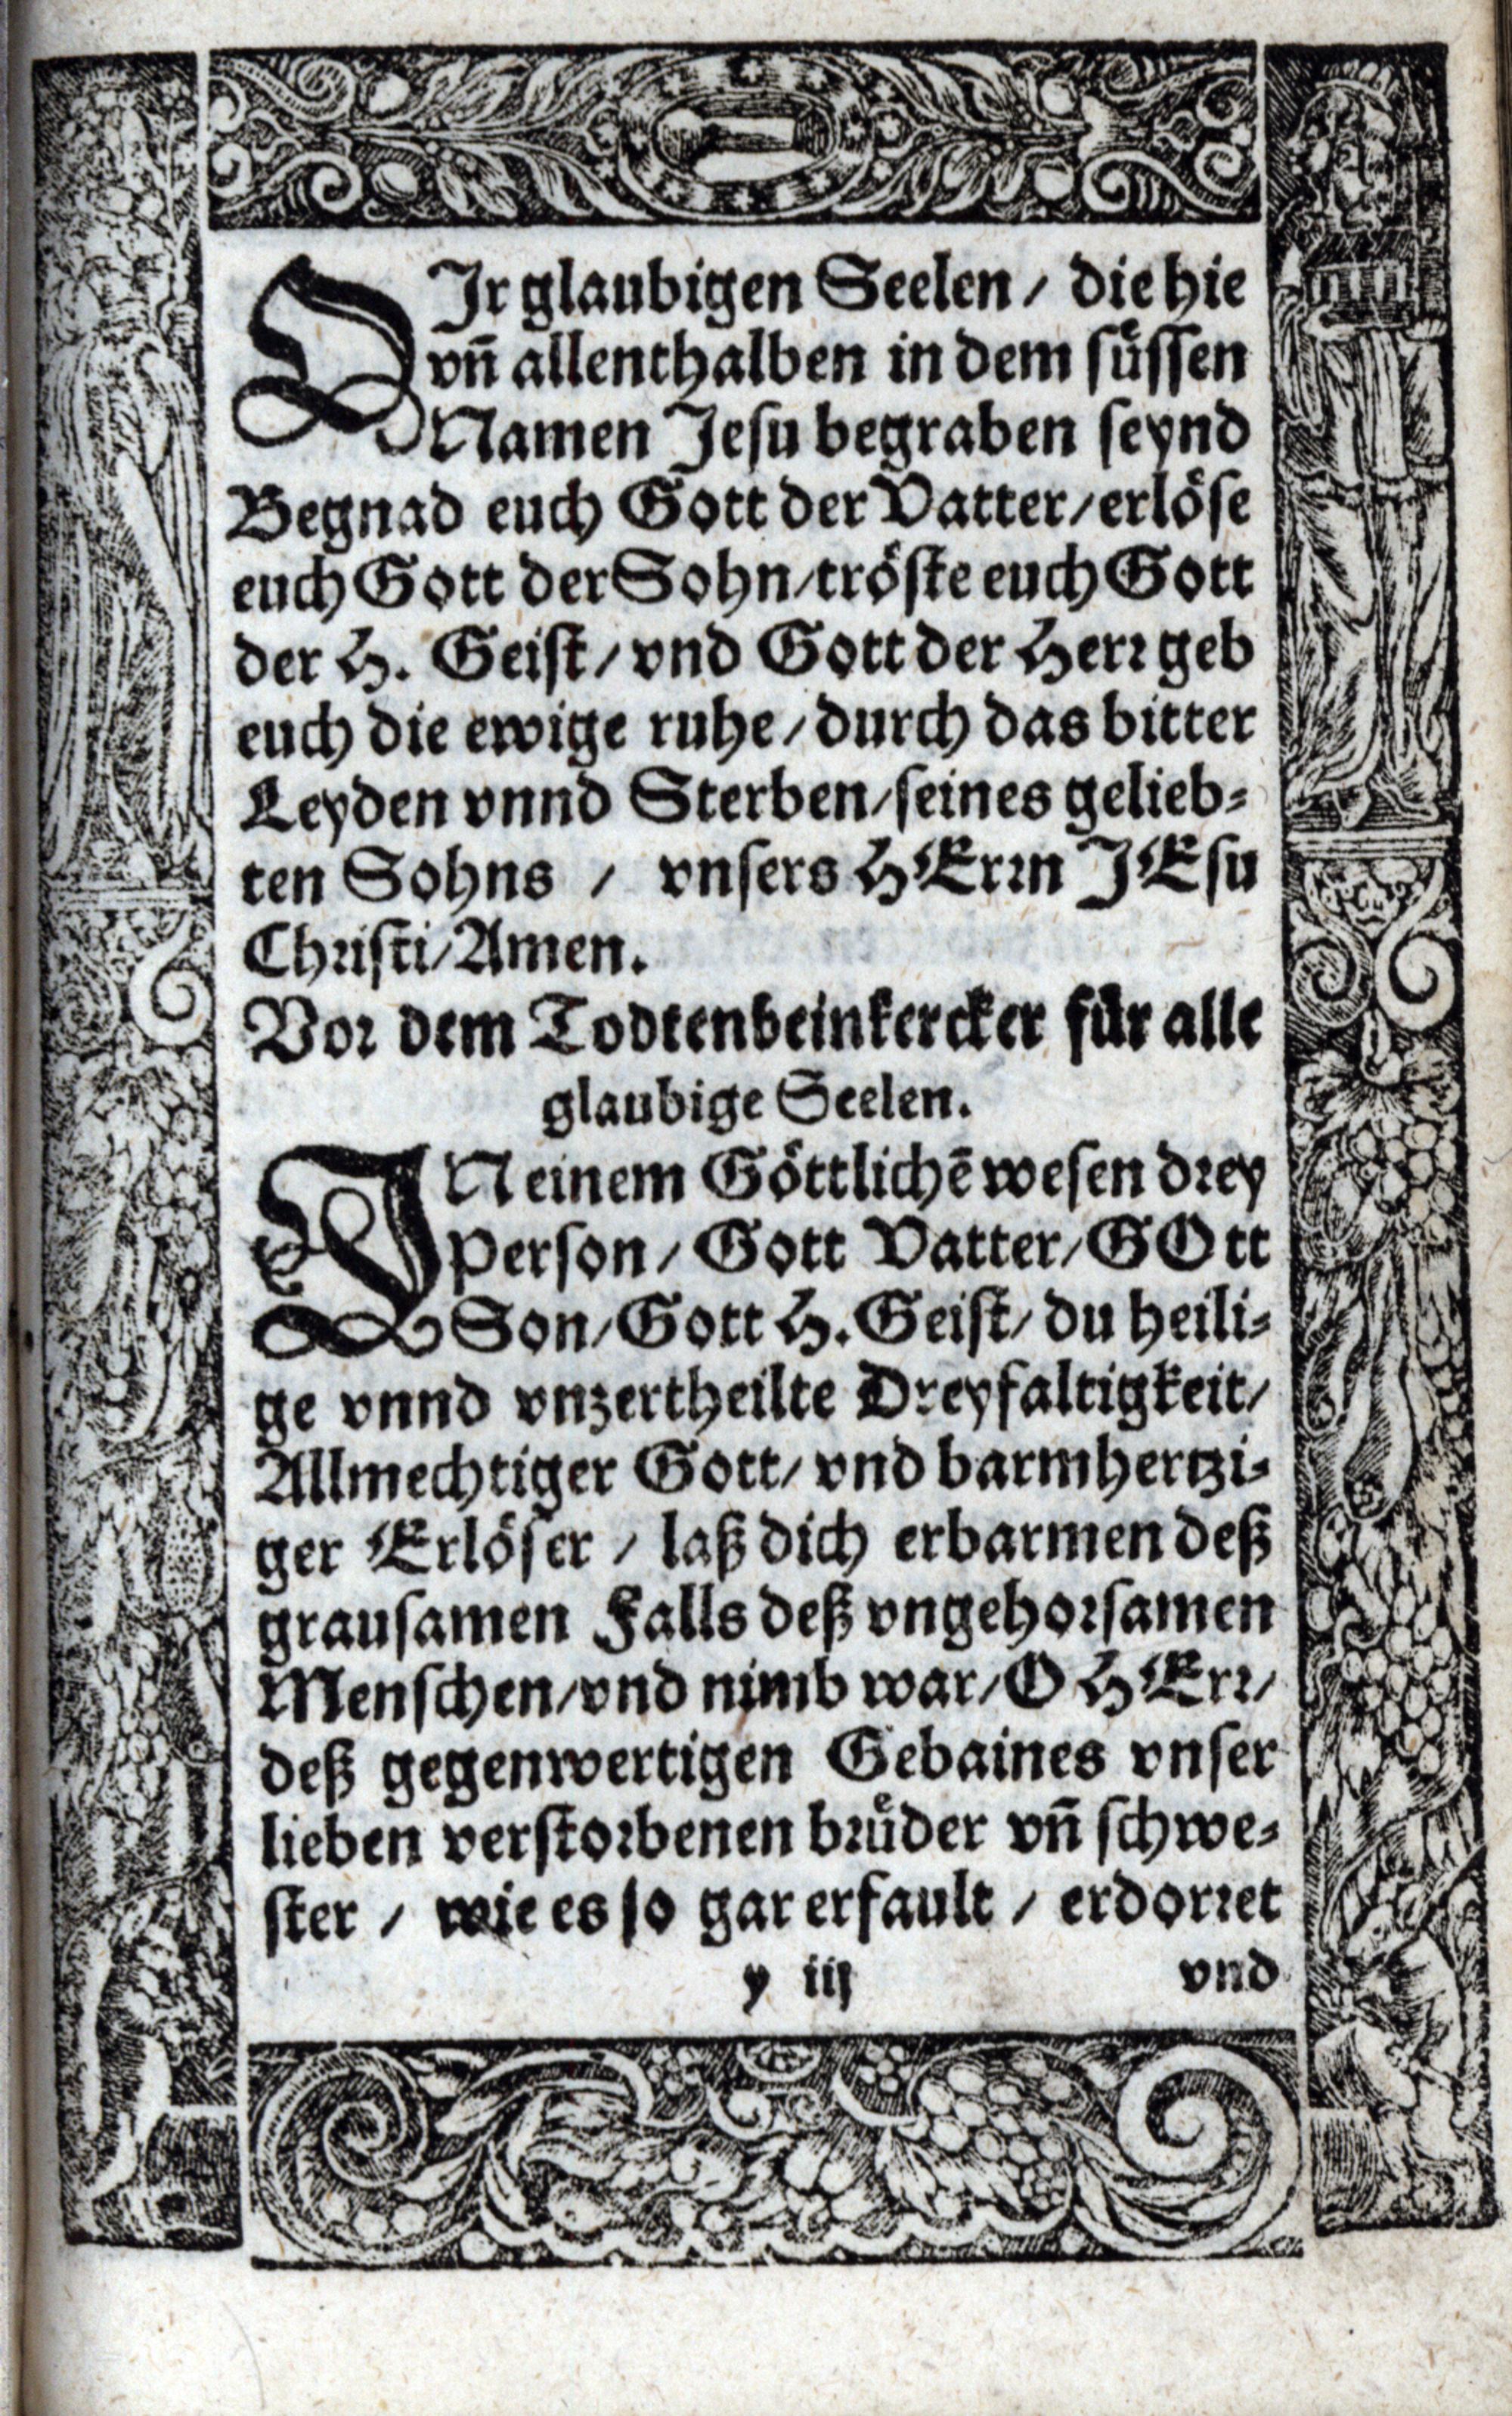 OIr glaubigen Seelen / die hie
vñ allenthalben in dem süssen
Namen Jesu begraben seynd
Begnad euch Gott der Vatter / erlöse
euch Gott der Sohn / tröste euch Gott
der H. Geist / vnd Gott der Herr geb
euch die ewige ruhe / durch das bitter
Leyden vnnd Sterben / seines gelieb-
ten Sohns / vnsers HErrn JEsu
Christi / Amen.
Vor dem Todtenbeinkercker für alle
glaubige Seelen.
IN einem Göttlichē wesen drey
Person / Gott Vatter / GOtt
Son / Gott H. Geist / du heili-
ge vnnd vnzertheilte Dreyfaltigkeit /
Allmechtiger Gott / vnd barmhertzi-
ger Erlöser / laß dich erbarmen deß
grausamen Falls deß vngehorsamen
Menschen / vnd nimb war / O HErr /
deß gegenwertigen Gebaines vnser
lieben verstorbenen brüder vñ schwe-
ster / wie es so gar erfault / erdorret
y iij vnd